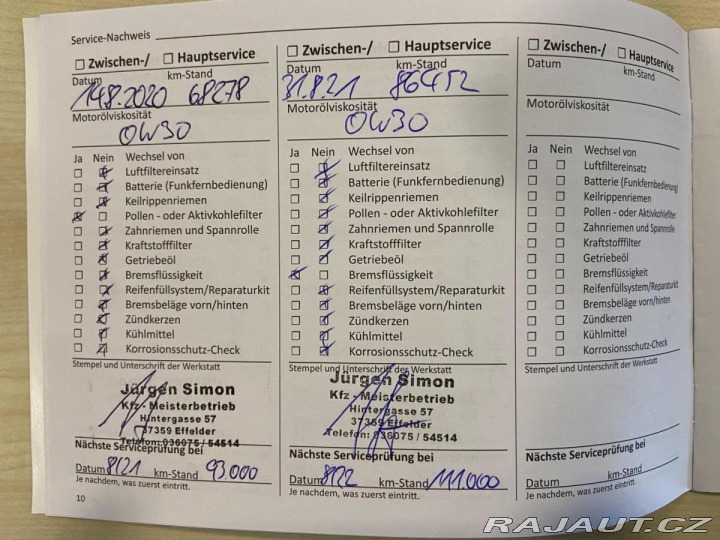 Service-Nachweis
☐ Zwischen-/ ☐ Hauptservice
Datum km-Stand
14.8.2020 68278
Motorölviskosität
0W30
Ja Nein Wechsel von
☐ ☒ Luftfiltereinsatz
☐ ☒ Batterie (Funkfernbedienung)
☐ ☒ Keilrippenriemen
☒ ☐ Pollen - oder Aktivkohlefilter
☐ ☒ Zahnriemen und Spannrolle
☐ ☒ Kraftstofffilter
☐ ☒ Getriebeöl
☐ ☒ Bremsflüssigkeit
☐ ☒ Reifenfüllsystem/Reparaturkit
☐ ☒ Bremsbeläge vorn/hinten
☐ ☒ Zündkerzen
☐ ☒ Kühlmittel
☐ ☒ Korrosionsschutz-Check
Stempel und Unterschrift der Werkstatt
Jürgen Simon
Kfz - Meisterbetrieb
Hintergasse 57
37359 Effelder
Telefon: 036075 / 54514
Nächste Serviceprüfung bei
Datum 8/21 km-Stand 93.000
Je nachdem, was zuerst eintritt.
10
☐ Zwischen-/ ☐ Hauptservice
Datum km-Stand
31.8.21 86452
Motorölviskosität
0W30
Ja Nein Wechsel von
☐ ☒ Luftfiltereinsatz
☐ ☒ Batterie (Funkfernbedienung)
☐ ☒ Keilrippenriemen
☐ ☒ Pollen - oder Aktivkohlefilter
☐ ☒ Zahnriemen und Spannrolle
☐ ☒ Kraftstofffilter
☐ ☒ Getriebeöl
☒ ☐ Bremsflüssigkeit
☐ ☒ Reifenfüllsystem/Reparaturkit
☐ ☒ Bremsbeläge vorn/hinten
☐ ☒ Zündkerzen
☐ ☒ Kühlmittel
☐ ☒ Korrosionsschutz-Check
Stempel und Unterschrift der Werkstatt
Jürgen Simon
Kfz - Meisterbetrieb
Hintergasse 57
37359 Effelder
Telefon: 036075 / 54514
Nächste Serviceprüfung bei
Datum 8/22 km-Stand 111.000
Je nachdem, was zuerst eintritt.
☐ Zwischen-/ ☐ Hauptservice
Datum km-Stand
Motorölviskosität
Ja Nein Wechsel von
☐ ☐ Luftfiltereinsatz
☐ ☐ Batterie (Funkfernbedienung)
☐ ☐ Keilrippenriemen
☐ ☐ Pollen - oder Aktivkohlefilter
☐ ☐ Zahnriemen und Spannrolle
☐ ☐ Kraftstofffilter
☐ ☐ Getriebeöl
☐ ☐ Bremsflüssigkeit
☐ ☐ Reifenfüllsystem/Reparaturkit
☐ ☐ Bremsbeläge vorn/hinten
☐ ☐ Zündkerzen
☐ ☐ Kühlmittel
☐ ☐ Korrosionsschutz-Check
Stempel und Unterschrift der Werkstatt
Nächste Serviceprüfung bei
Datum km-Stand
Je nachdem, was zuerst eintritt.
RAJAUT.CZ